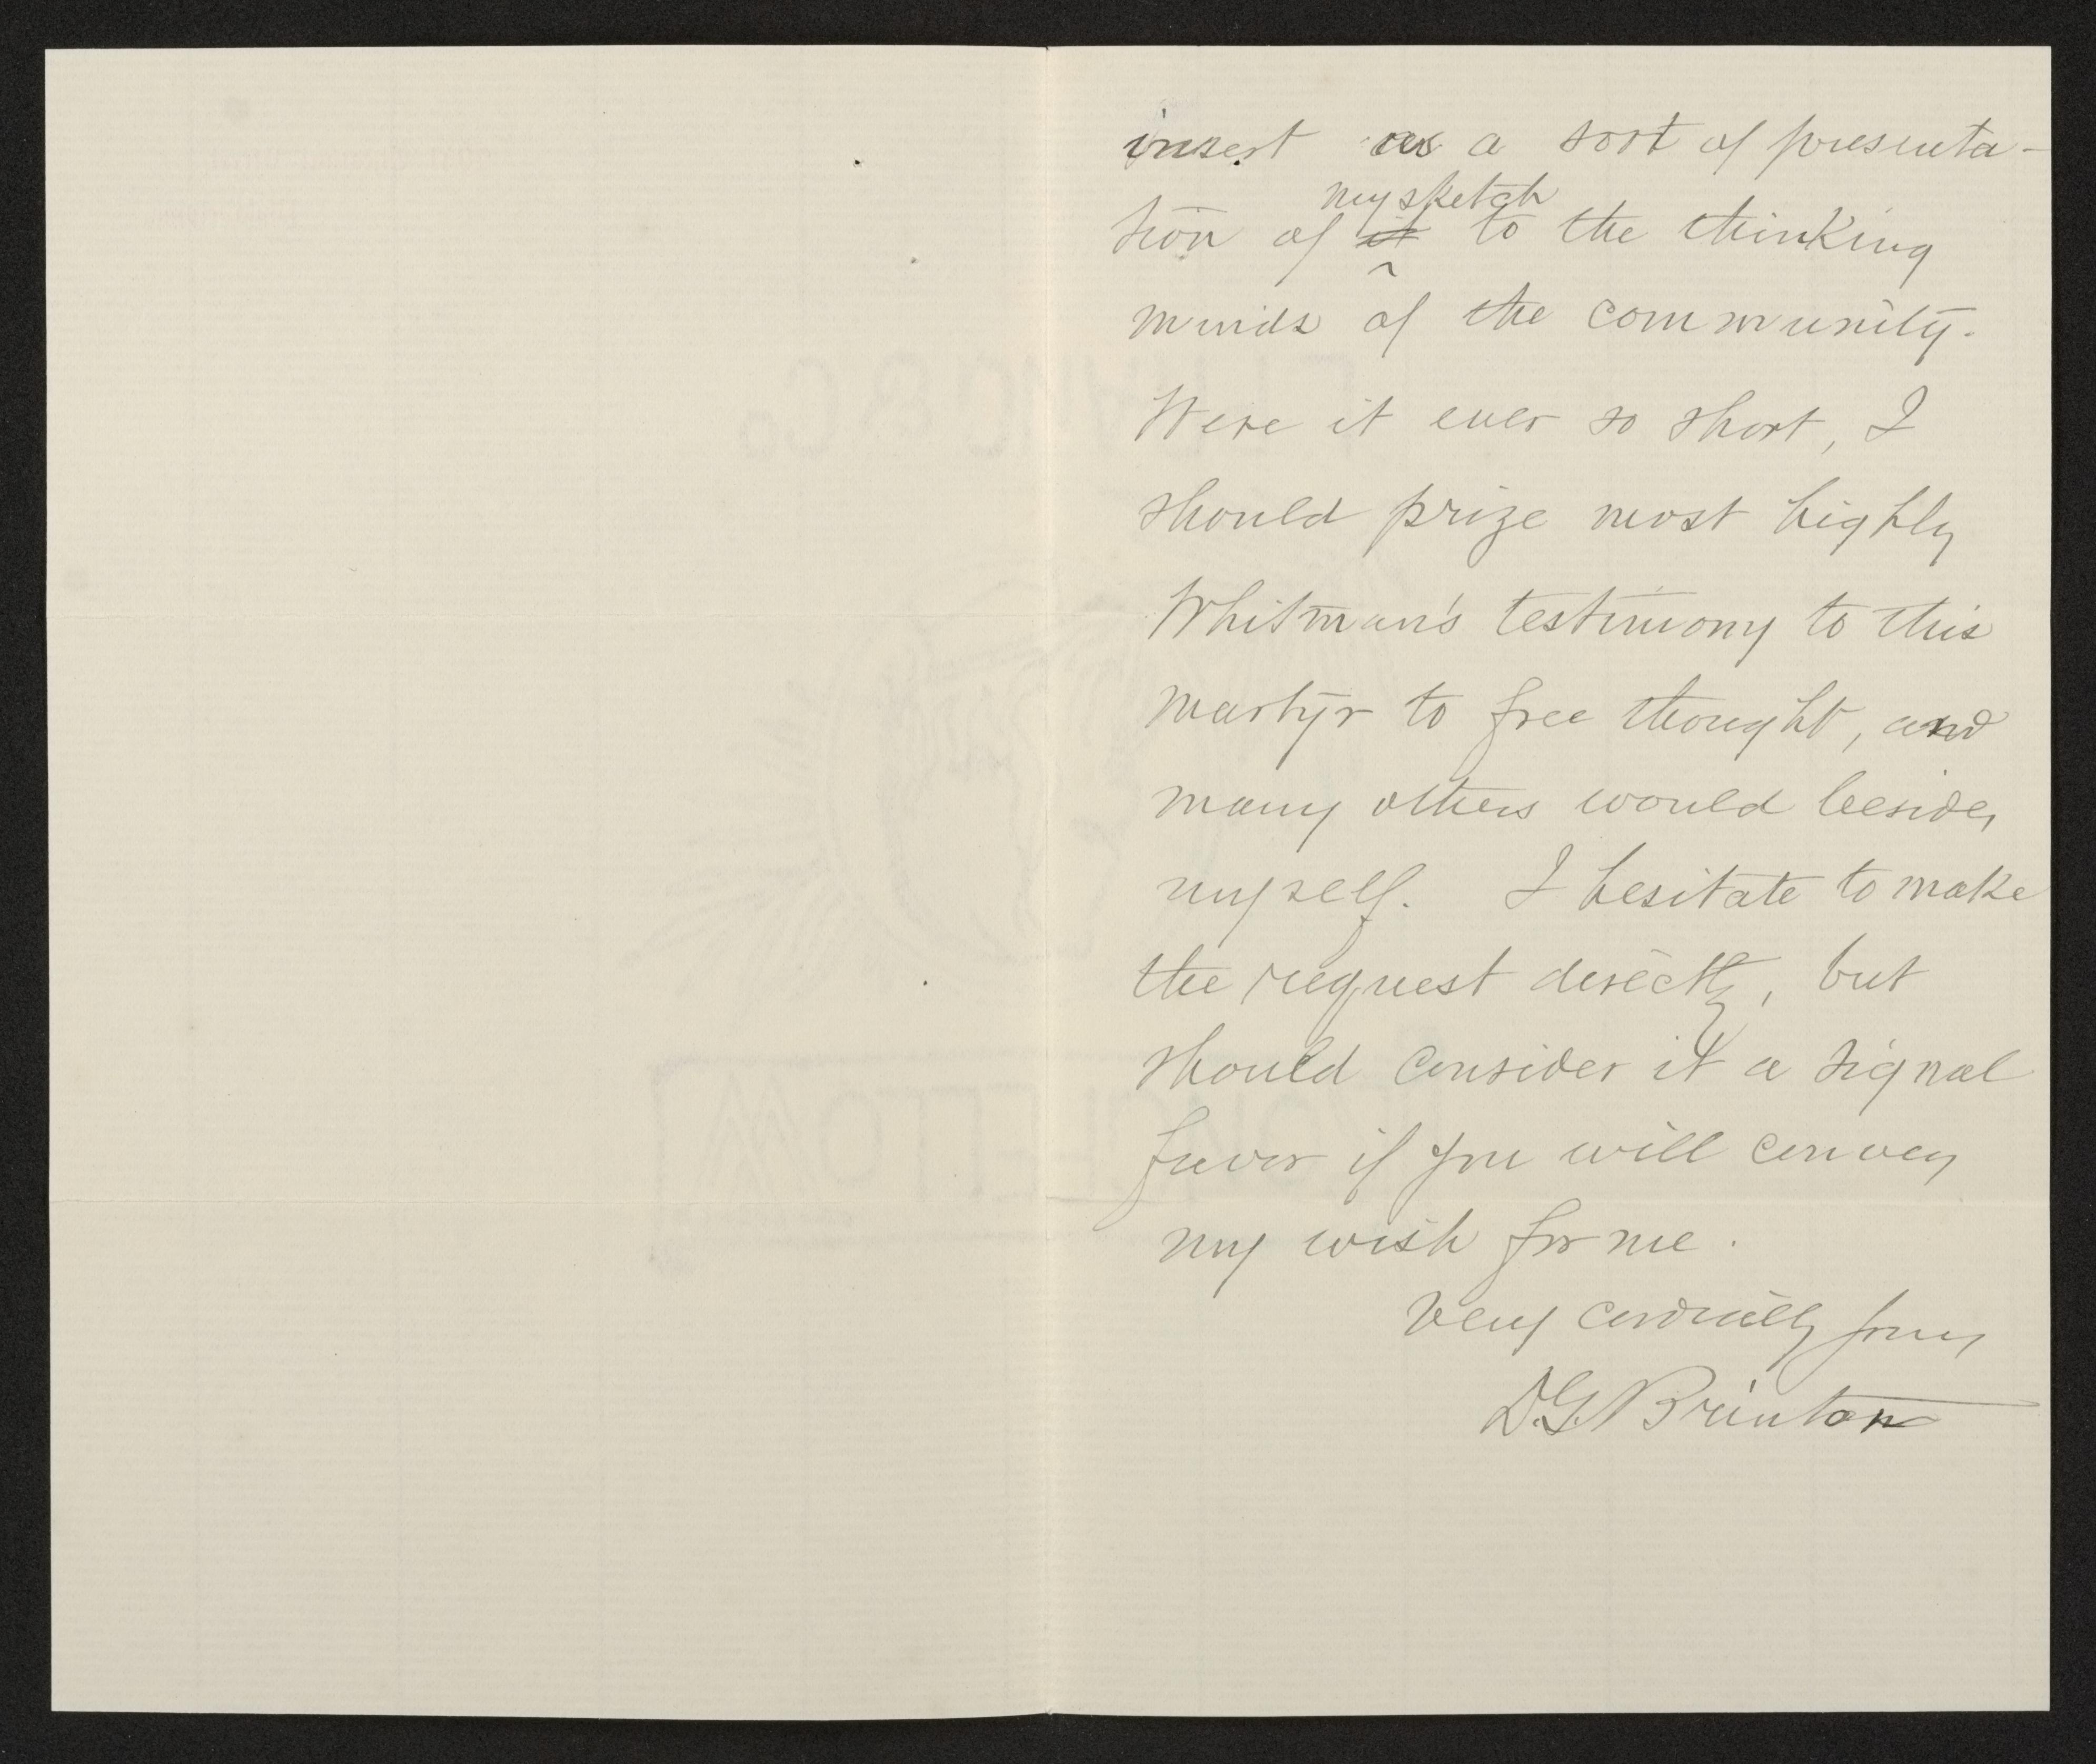 insert as a sort of presenta-
my sketch
tion of it to the thinking
minds of the community.
Were it ever so short, I
should prize most highly
Whitman's testimony to this
martyr to free thought, and
many others would besides
myself. I hesitate to make
the request directly, but
should consider it a signal
favor if you will convey
my wish for me.
Very cordially yours
D.G. Brinton